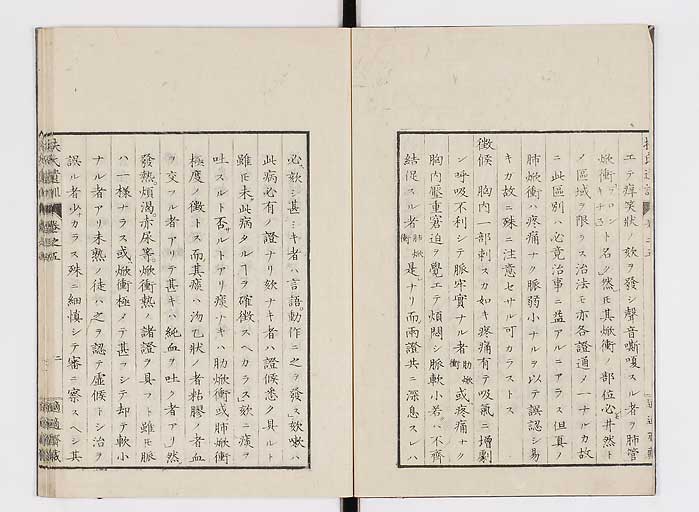 エテ痒笑状ノ欬ヲ發シ聲音嘶嗄スル者ヲ肺管
焮衝ブロントト名ク然モ其焮衝ノ部位心井然ト
ノ區域ヲ限ラス治法モ亦各證通メ一ナルカ故
ニ此區別ハ必竟治事ニ益アルニアラス但真ノ
肺焮衝ハ疼痛ナク脈弱小ナルヲ以テ誤認シ易
キカ故ニ殊ニ注意セサル可カラストス
徴候 胸内一部刺スカ如キ疼痛有テ吸氣ニ増劇
シ呼吸不利シテ脈牢實ナル者肋焮衝或疼痛ナク
胸内壓重窘迫ヲ覺エテ煩悶シ脈軟小若ハ不齊
結促スル者肺焮衝是ナリ而兩證共ニ深息スレハ
必欬シ甚シキ者ハ言語動作ニ之ヲ發ス欬嗽ハ
此病必有ノ證ナリ欬ナキ者ハ證候悉ク具ルト
雖モ未此病タルヿヲ確徴スヘカラス欬ニ痰ヲ
吐スルト否サルトアリ痰ナキハ肋焮衝或肺焮衝
極度ノ徴トス而其痰ハ泡乇狀ノ者粘膠ノ者血
ヲ交フル者アリテ甚キハ純血ヲ吐ク者アリ然
發熱煩渇赤尿等焮衝熱ノ諸證ヲ具フト雖モ脈
ハ一様ナラス或焮衝極メテ甚フシテ却テ軟小
ナル者アリ未熟ノ徒ハ之ヲ認テ虚候トシ治ヲ
誤ル者少カラス殊ニ細慎シテ審ニ察スヘシ其
扶氏遺訓
卷之五
二
適適齋藏